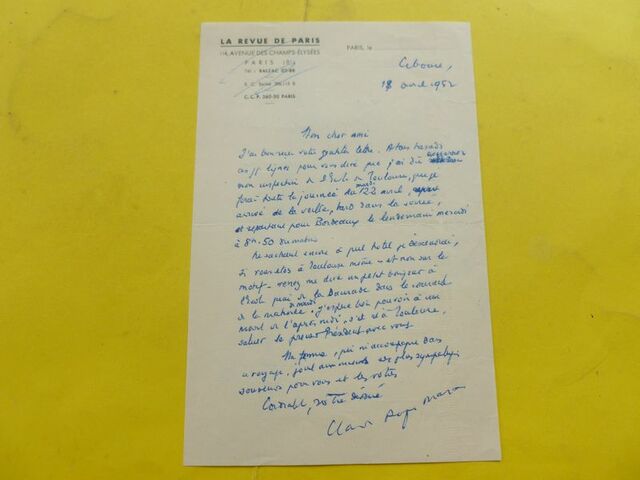 LA REVUE DE PARIS
114, AVENUE DES CHAMPS-ÉLYSÉES
PARIS (8e)
Tél : BALZAC
R. C. Seine
C. C. P. 260-30 PARIS
PARIS, le
Ciboure,
18 avril 1952
Mon cher ami
J'ai bien reçu votre lettre. A tous hasards
ces lignes pour vous dire que j'ai dû
mon inspection de l'École de Toulouse, que je
ferai toute la journée du mardi 22 avril,
arrivé de la veille, tard dans la soirée,
et repartant pour Bordeaux le lendemain mercredi
à 8h.50 du matin
Ne sachant encore à quel hôtel je descendrai,
si vous êtes à Toulouse même - et non sur le
motif - venez me dire un petit bonjour à
l'École quai de la Daurade dans le courant
de la matinée. J'espère bien pouvoir à un
moment de l'après-midi, s'il est à Toulouse,
saluer le Président avec vous
Ma femme, qui ne m'accompagne pas
en voyage, joint aux miens ses plus sympathiques
souvenirs pour vous et les vôtres
votre dévoué
Claude Roger-Marx